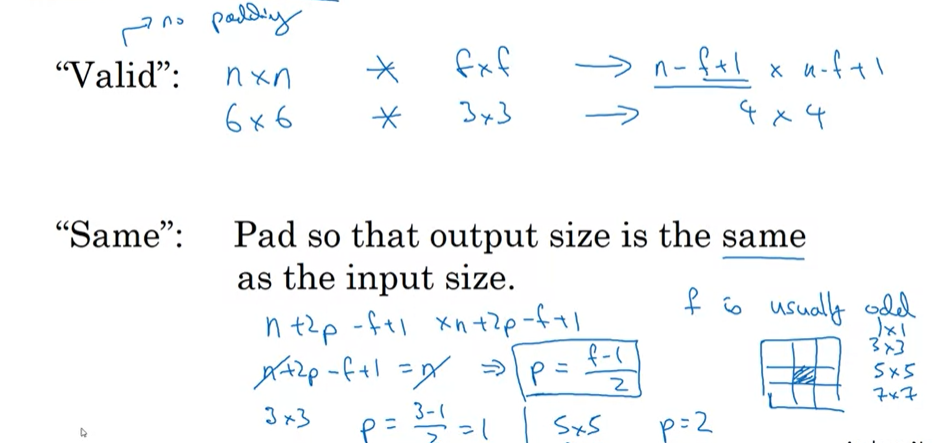 no padding
“Valid”: n×n * f×f → n-f+1 × n-f+1
6×6 * 3×3 → 4×4
“Same”: Pad so that output size is the same
as the input size.
n+2p-f+1 ×n+2p-f+1
n+2p-f+1 = n ⇒ p = f-1/2
3×3 p = 3-1/2 = 1 | 5×5 p=2
f is usually odd
1×1
3×3
5×5
7×7